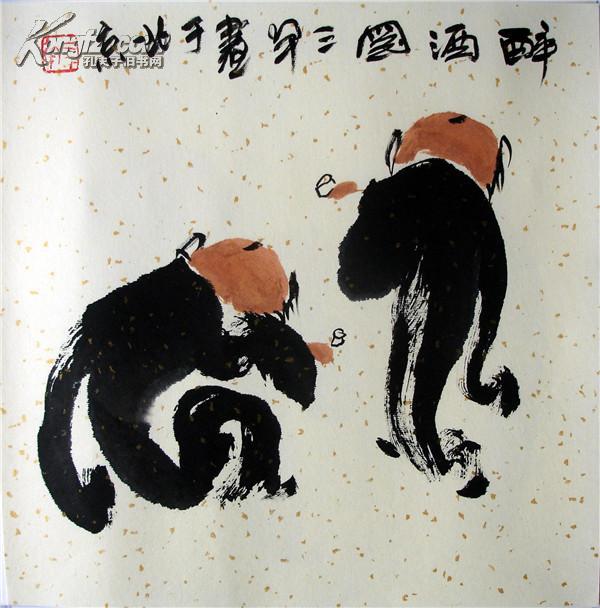 醉酒图三畫于北京
孔夫子旧书网